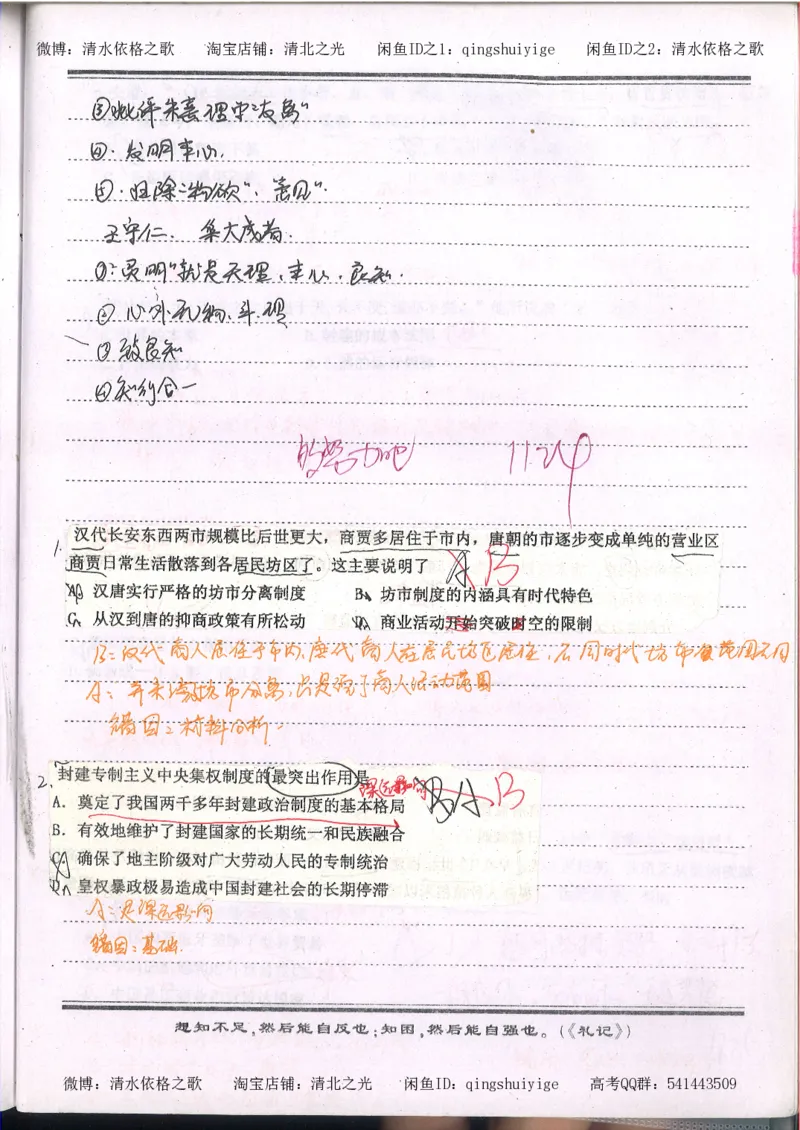 微博：清水依格之歌 淘宝店铺：清北之光 闲鱼ID之1：qingshuiyige 闲鱼ID之2：清水依格之歌
③批评朱熹理学"支离"
④·发明本心.
⑤·扫除"物欲"、"意见"·
王守仁. 集大成者.
①"灵明"就是天理、本心、良知.
②心外无物、斗理
③致良知
④知行合一
努力吧 11.24
1. 汉代长安东西两市规模比后世更大，商贾多居住于市内，唐朝的市逐步变成单纯的营业区
商贾日常生活散落到各居民坊区了。这主要说明了 A B
A. 汉唐实行严格的坊市分离制度 B. 坊市制度的内涵具有时代特色
C. 从汉到唐的抑商政策有所松动 D. 商业活动开始突破时空的限制
B：汉代商人居住于市内，唐代商人在居民坊区居住，不同时代坊市范围不同
A：并未谈坊市分离，只是商人活动范围
错因：材料分析.
2. 封建专制主义中央集权制度的最突出作用是 深远影响 B A B
A．奠定了我国两千多年封建政治制度的基本格局
B．有效地维护了封建国家的长期统一和民族融合
C．确保了地主阶级对广大劳动人民的专制统治
D．皇权暴政极易造成中国封建社会的长期停滞
A：是深远影响
错因：基础.
想知不足，然后能自反也；知困，然后能自强也。（《礼记》）
微博：清水依格之歌 淘宝店铺：清北之光 闲鱼ID：qingshuiyige 高考QQ群：541443509